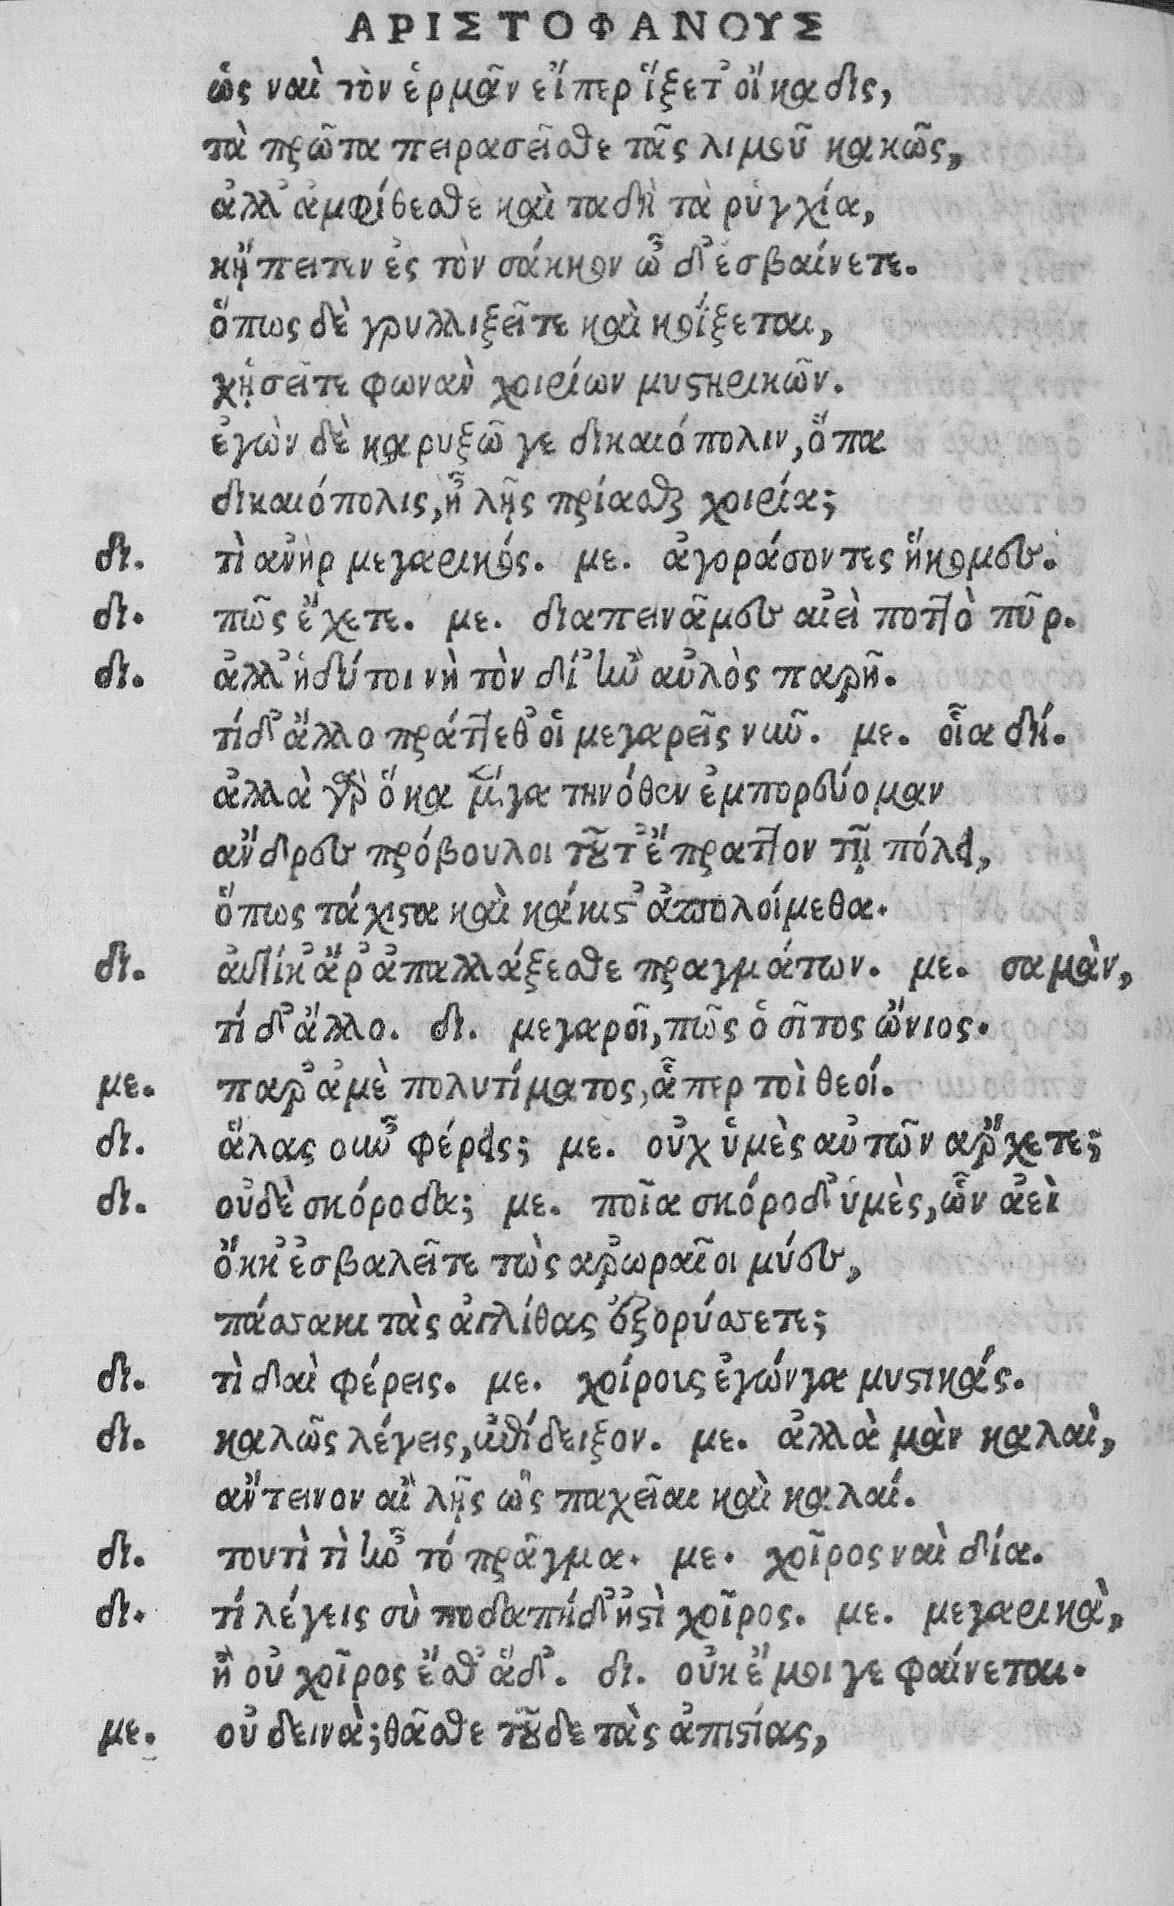 ΑΡΙΣΤΟΦΑΝΟΥΣ
ὡς ναὶ τὸν ἑρμᾶν εἴπερ ἵξετ' οἴκαδις,
τὰ πρῶτα πειρασεῖσθε τᾶς λιμοῦ κακῶς,
ἀλλ' ἀμφίθεσθε καὶ ταδὶ τὰ ῥύγχία,
κᾔπειτεν ἐς τὸν σάκκον ὧδ' ἐσβαίνετε.
ὅπως δὲ γρυλλιξεῖτε καὶ κοΐξεται,
χᾐσεῖτε φωνὰν χοιρίων μυστηρικῶν.
ἐγὼν δὲ καρυξῶ γε δικαιόπολιν, ὅπα
δικαιόπολις, ἦ λῇς πρίασθαι χοιρία;
δι. τὶ ἀνὴρ μεγαρικός. με. ἀγοράσοντες ἥκομες.
δι. πῶς ἔχετε. με. διαπεινᾶμες αἰεὶ ποττὸ πῦρ.
δι. ἀλλ' ἡδύ τοι νὴ τὸν δί' ἢν αὐλὸς παρῆ.
τί δ' ἄλλο πράττεθ' οἱ μεγαρεῖς νῦν. με. οἷα δή.
ἀλλὰ γὰρ ὅκα μέγα τηνόθεν ἐμπορευόμαν
ἄνδρες πρόβουλοι τοῦτ' ἔπραττον τῇ πόλει,
ὅπως τάχιστα καὶ κάκιστ' ἀπολοίμεθα.
δι. αὐτίκ' ἄρ' ἀπαλλάξεσθε πραγμάτων. με. σαμὰν,
τί δ' ἄλλο. δι. μεγαροῖ, πῶς ὁ σῖτος ὤνιος.
με. παρ' ἀμὲ πολυτίματος, ἇπερ τοὶ θεοί.
δι. ἅλας οὖν φέρεις; με. οὐχ ὑμὲς αὐτῶν ἄρχετε;
δι. οὐδὲ σκόροδα; με. ποῖα σκόροδ' ὑμὲς, ὧν ἀεὶ
ὄκκ' ἐσβαλεῖτε τὼς ἀρωραῖοι μύες,
πάσσακι τὰς ἀγλίθας ἐξορύσσετε;
δι. τὶ δαὶ φέρεις. με. χοίρους ἐγώνγα μυστικάς.
δι. καλῶς λέγεις, ἐπίδειξον. με. ἀλλὰ μὰν καλαὶ,
ἄντεινον αἲ λῇς ὡς παχεῖαι καὶ καλαί.
δι. τουτὶ τὶ ἦν τό πρᾶγμα. με. χοῖρος ναὶ δία.
δι. τί λέγεις σὺ ποδαπή δ' ἠστὶ χοῖρος. με. μεγαρικὰ,
ἢ οὐ χοῖρος ἔσθ' ἅδ'. δι. οὐκ ἔμοιγε φαίνεται.
με. οὐ δεινὰ; θᾶσθε τοῦδε τὰς ἀπιστίας,